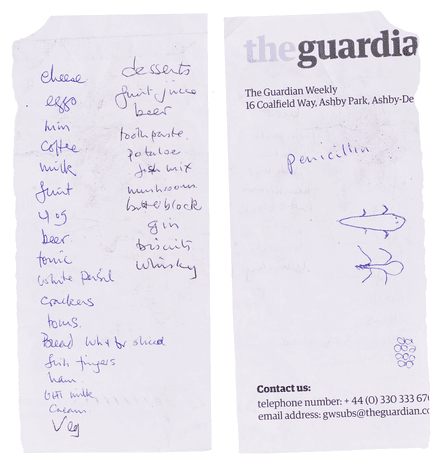 cheese
eggs
coffee
milk
fruit
yog
beer
tonic
white Persil
crackers
toms.
Bread wht br sliced
fish fingers
ham
milk
cream
Veg
desserts
fruit juice
beer
toothpaste
potatoes
fish mix
mushroom
block
gin
biscuits
whisky
theguardia
The Guardian Weekly
16 Coalfield Way, Ashby Park, Ashby-De
penicillin
Contact us:
telephone number: + 44 (0) 330 333 67
email address: gwsubs@theguardian.co